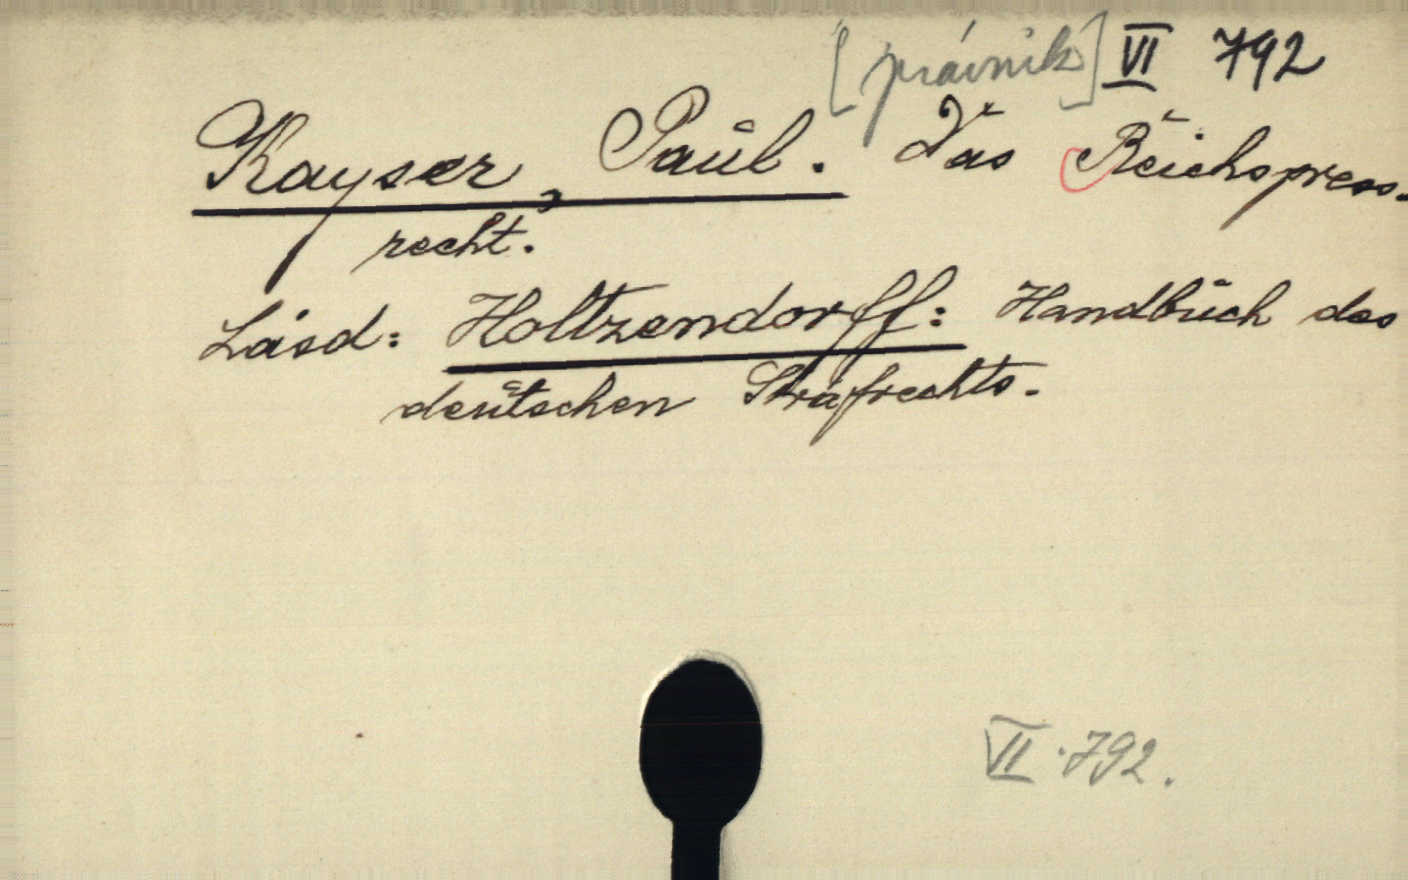 [právnik] VI 792
Kayser, Paul. Das Reichspress-
recht.
Lásd: Holtzendorff: Handbuch des
deutschen Strafrechts.
VII. 792.